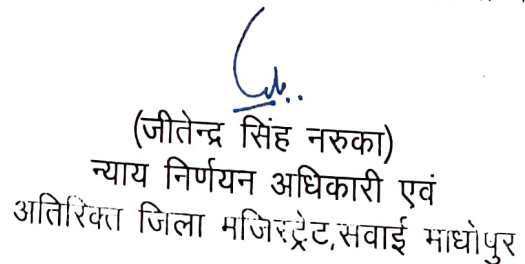 (जीतेन्द्र सिंह नरुका)
न्याय निर्णयन अधिकारी एवं
अतिरिक्त जिला मजिस्ट्रेट,सवाई माधोपुर